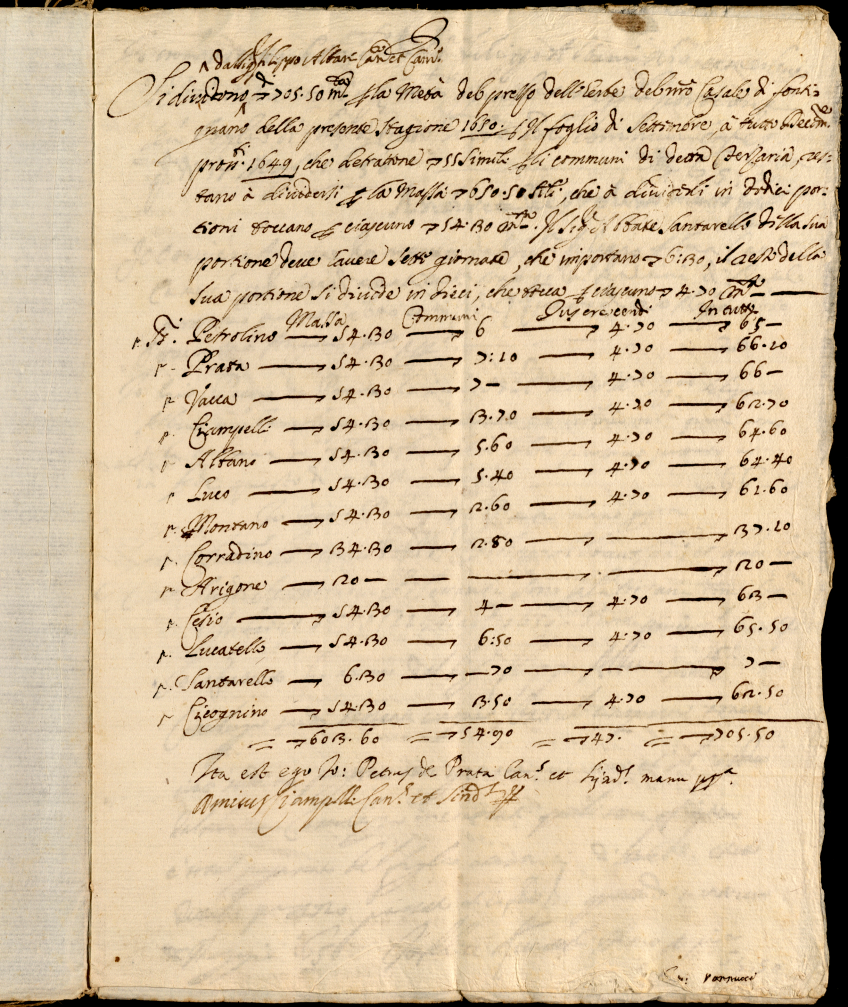 dal Sig. Filippo Altare Can. et Cam.
Si dividono ▽ 705.50 mta p la metà del prezzo dell'Erbe del nro Casale di fonti=
gnano della presente stagione 1650. p Il foglio di Settembre, à tutto Xbre
pross. 1649, che detratone ▽ 55 simili p li communi di detta Terzaria, res=
tano à dividersi p la Massa ▽ 650.50 sili, che à dividerli in dodici por=
tioni toccano p ciascuno ▽ 54.30 mta. Il Sig. Abbate Santarello dalla sua
portione deve havere sette giornate, che importano ▽ 6:30, il resto della
sua portione si divide in dieci, che tocca p ciascuno ▽ 4.70 mta
Massa Communi In tutto
r SS.i Petrolino — 54.30 — 6 — 4.70 — 65 —
r. Prata — 54.30 — 7:10 — 4.70 — 66.10
r. Vacca — 54.30 — 7 — — 4.70 — 66 —
r. Ciampelli — 54.30 — 3.70 — 4.70 — 62.70
r. Altano — 54.30 — 5.60 — 4.70 — 64.60
r. Luco — 54.30 — 5.40 — 4.70 — 64.40
r. Montano — 54.30 — 2.60 — 4.70 — 61.60
r. Corradino — 34.30 — 2.80 — — 37.10
r. Arigone — 20 — — — — 20 —
r. Cesio — 54.30 — 4 — — 4.70 — 63 —
r. Lucatello — 54.30 — 6:50 — 4.70 — 65.50
r. Santarello — 6.30 — —70 — — — 7 —
r Cicognino — 54.30 — 3.50 — 4.70 — 62.50
= ▽ 603.60 = ▽ 54.90 = ▽ 47. = ▽ 705.50
Ita est ego Jo: Petrus de Prata Can.s et Sind.s manu ppa.
Ciampelli Can.s et Sind.s
Vannucci